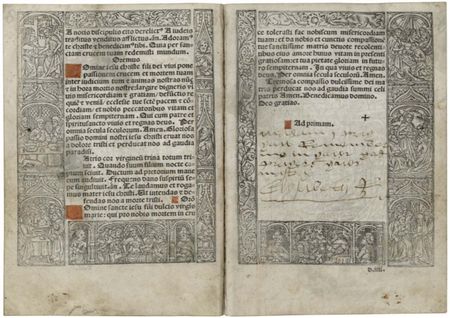 A notis discipulis cito derelict⁹ A iudeis
traditus venditus afflictus. Adoram⁹
te christe & benedicim⁹ tibi. Quia per san=
ctam crucem tuam redemisti mundum.
Oremus
Domine iesu christe fili dei viui pone
passionem crucem et mortem tuam
inter iudicium tuum & animas nostras nūc
& in hora mortis nostre largire dignare vi
uis misericordiam & gratiam: defūctis re
quiē & veniā: ecclesie tue pacem & cō
cordiam: et nobis peccatoribus vitam et
gloriam sempiternam. Qui cum patre et
spiritusancto viuis et regnas Deus. Per
omnia secula seculorum. Amen. Gloriosa
passio domini nostri iesu christi eruat nos
a dolore tristi et perducat nos ad gaudia
paradisi.
cor virgineū trina totum tri
uit. Quando suum filium nocte
audiuit. Ductum ad pretorium mane
cum audiuit. Frequens dans suspiria se
pe singultiuit. Te laudamus et roga
mus mater iesu christi. Ut intendas & de
fendas nos a morte tristi. Oro
Domine sancte iesu fili dulcis virgīs
marie: qui pro nobis mortem in cru
ce tolerasti fac nobiscum misericordiam
tuam: et da nobis et cunctis compassionē
tue sanctissime matris deuote recolenti
bus eius amore vitam in presenti
gratiam et tua pietate gloriam in futu
ro sempiternam. In qua viuis et regnas
deus. Per omnia secula seculorū. Amen.
Gloriosa compassio dulcissime dei ma
tris perducat nos ad gaudia summi celi
patris Amen. Benedicamus domino.
Deo gratias.
Ad primam.